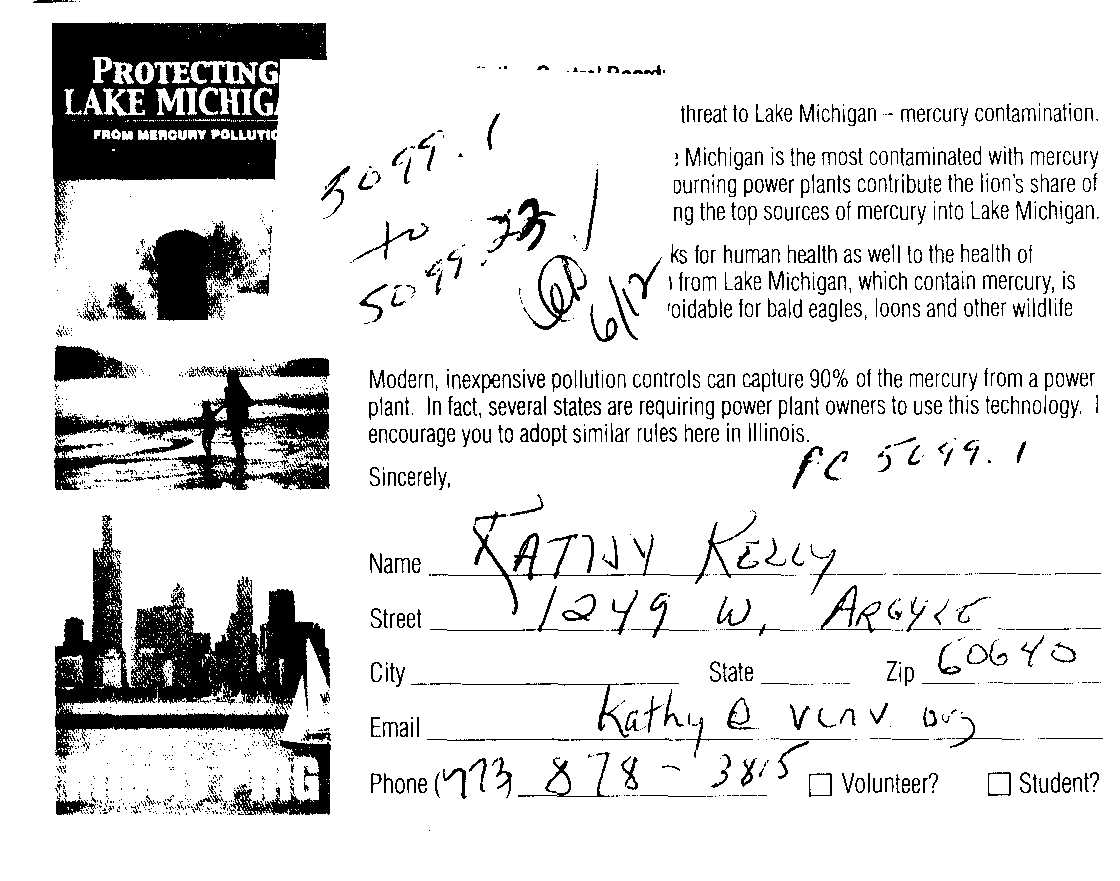 PROTECTING
LAKE MICHIGA
FROM MERCURY POLLUTIO
threat to Lake Michigan -- mercury contamination.
Michigan is the most contaminated with mercury
ourning power plants contribute the lion's share of
ng the top sources of mercury into Lake Michigan.
ks for human health as well to the health of
from Lake Michigan, which contain mercury, is
oidable for bald eagles, loons and other wildlife
5099.1
to
5099.
6/12
Modern, inexpensive pollution controls can capture 90% of the mercury from a power
plant. In fact, several states are requiring power plant owners to use this technology. I
encourage you to adopt similar rules here in Illinois.
PC 5099.1
Sincerely,
Name KATHY KELLY
Street 1249 W. ARGYLE
City State Zip 60640
Email Kathy@vcnv.org
Phone (773) 878-3815 Volunteer? Student?